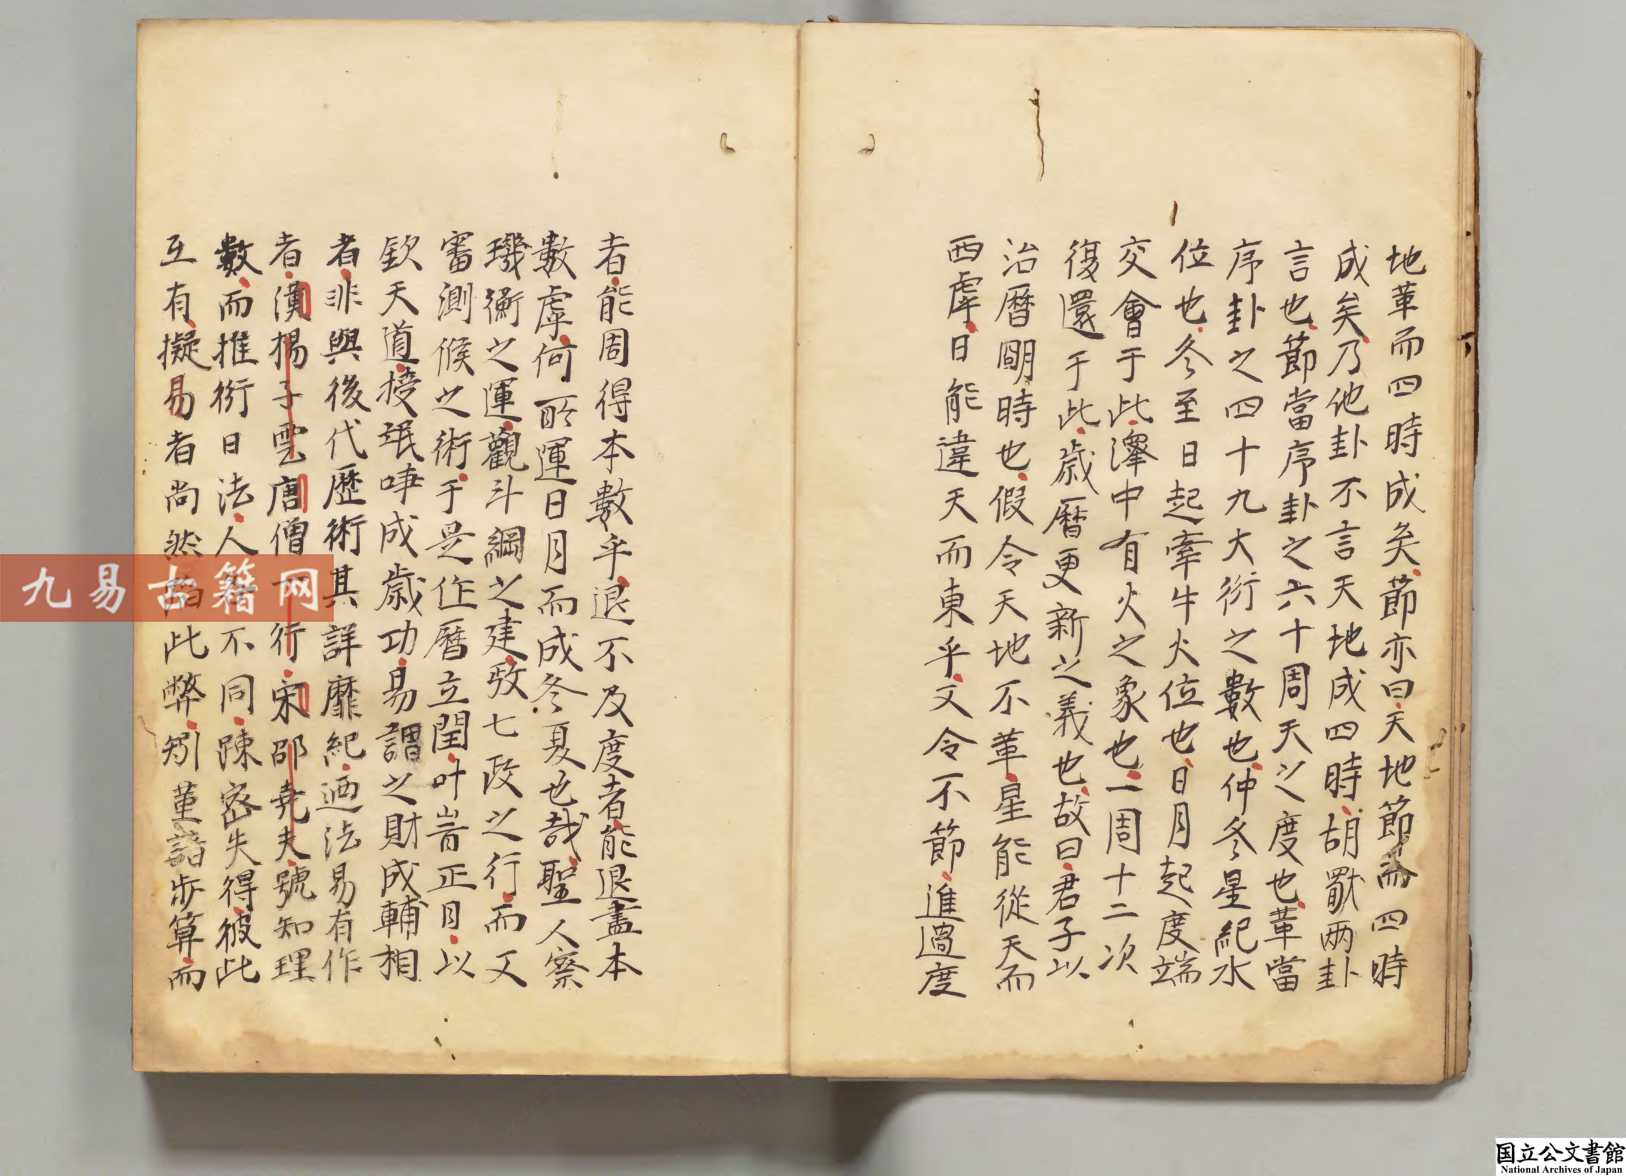 地革而四時成矣節亦曰天地節而四時
成矣乃他卦不言天地成四時胡獸兩卦
言也節當序卦之六十周天之度也革當
序卦之四十九大衍之數也仲冬星紀水
位也冬至日起牽牛火位也日月起度端
交會于此澤中有火之象也一周十二次
復還于此歳暦更新之義也故曰君子以
治暦明時也假令天地不革星能從天而
西虖日能違天而東乎又令不節進過度
者能周得本數乎退不及度者能退盡本
數虖何所運日月而成冬夏也哉聖人察
璣衡之運觀斗綱之建攷七政之行而又
審測候之術于是作暦立閏叶岢正日以
欽天道授氓事成歳功易謂之財成輔相
者非與後代歴術其詳靡紀迺法易有作
者漢楊子雲唐僧一行宋邵堯夫號知理
數而推衍日法人人不同踈宻失得彼此
互有擬易者尚然此弊矧菫諳步算而
九易古籍网
国立公文書館
National Archives of Japan